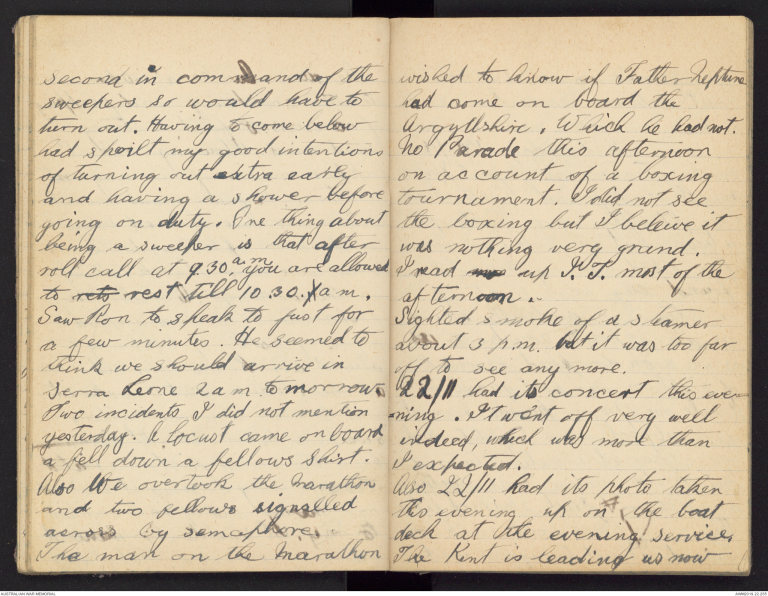 second in command of the
sweepers so would have to
turn out. Having to come below
had spoilt my good intentions
of turning out extra early
and having a shower before
going on duty. One thing about
being a sweeper is that after
roll call at 9.30 a.m. you are allowed
to reto rest till 10.30 a m.
Saw Ron to speak to just for
a few minutes. He seemed to
think we should arrive in
Serra Leone 2 a m. tomorrow.
Two incidents I did not mention
yesterday. A locust came on board
a fell down a fellows shirt.
Also We overtook the Marathon
and two fellows signalled
across by semaphore.
The man on the Marathon
wished to know if Father Neptune
had come on board the
Argyllshire. Which he had not.
No Parade this afternoon
on account of a boxing
tournament. I did not see
the boxing but I beleive it
was nothing very grand.
I read up I.T. most of the
afternoon.
Sighted smoke of a steamer
about 3 p.m. but it was too far
off to see any more.
22/11 had its concert this eve-
-ning. It went off very well
indeed, which was more than
I expected.
Also 22/11 had its photo taken
this evening up on the boat
deck at the evening service.
The Kent is leading us now
AUSTRALIAN WAR MEMORIAL